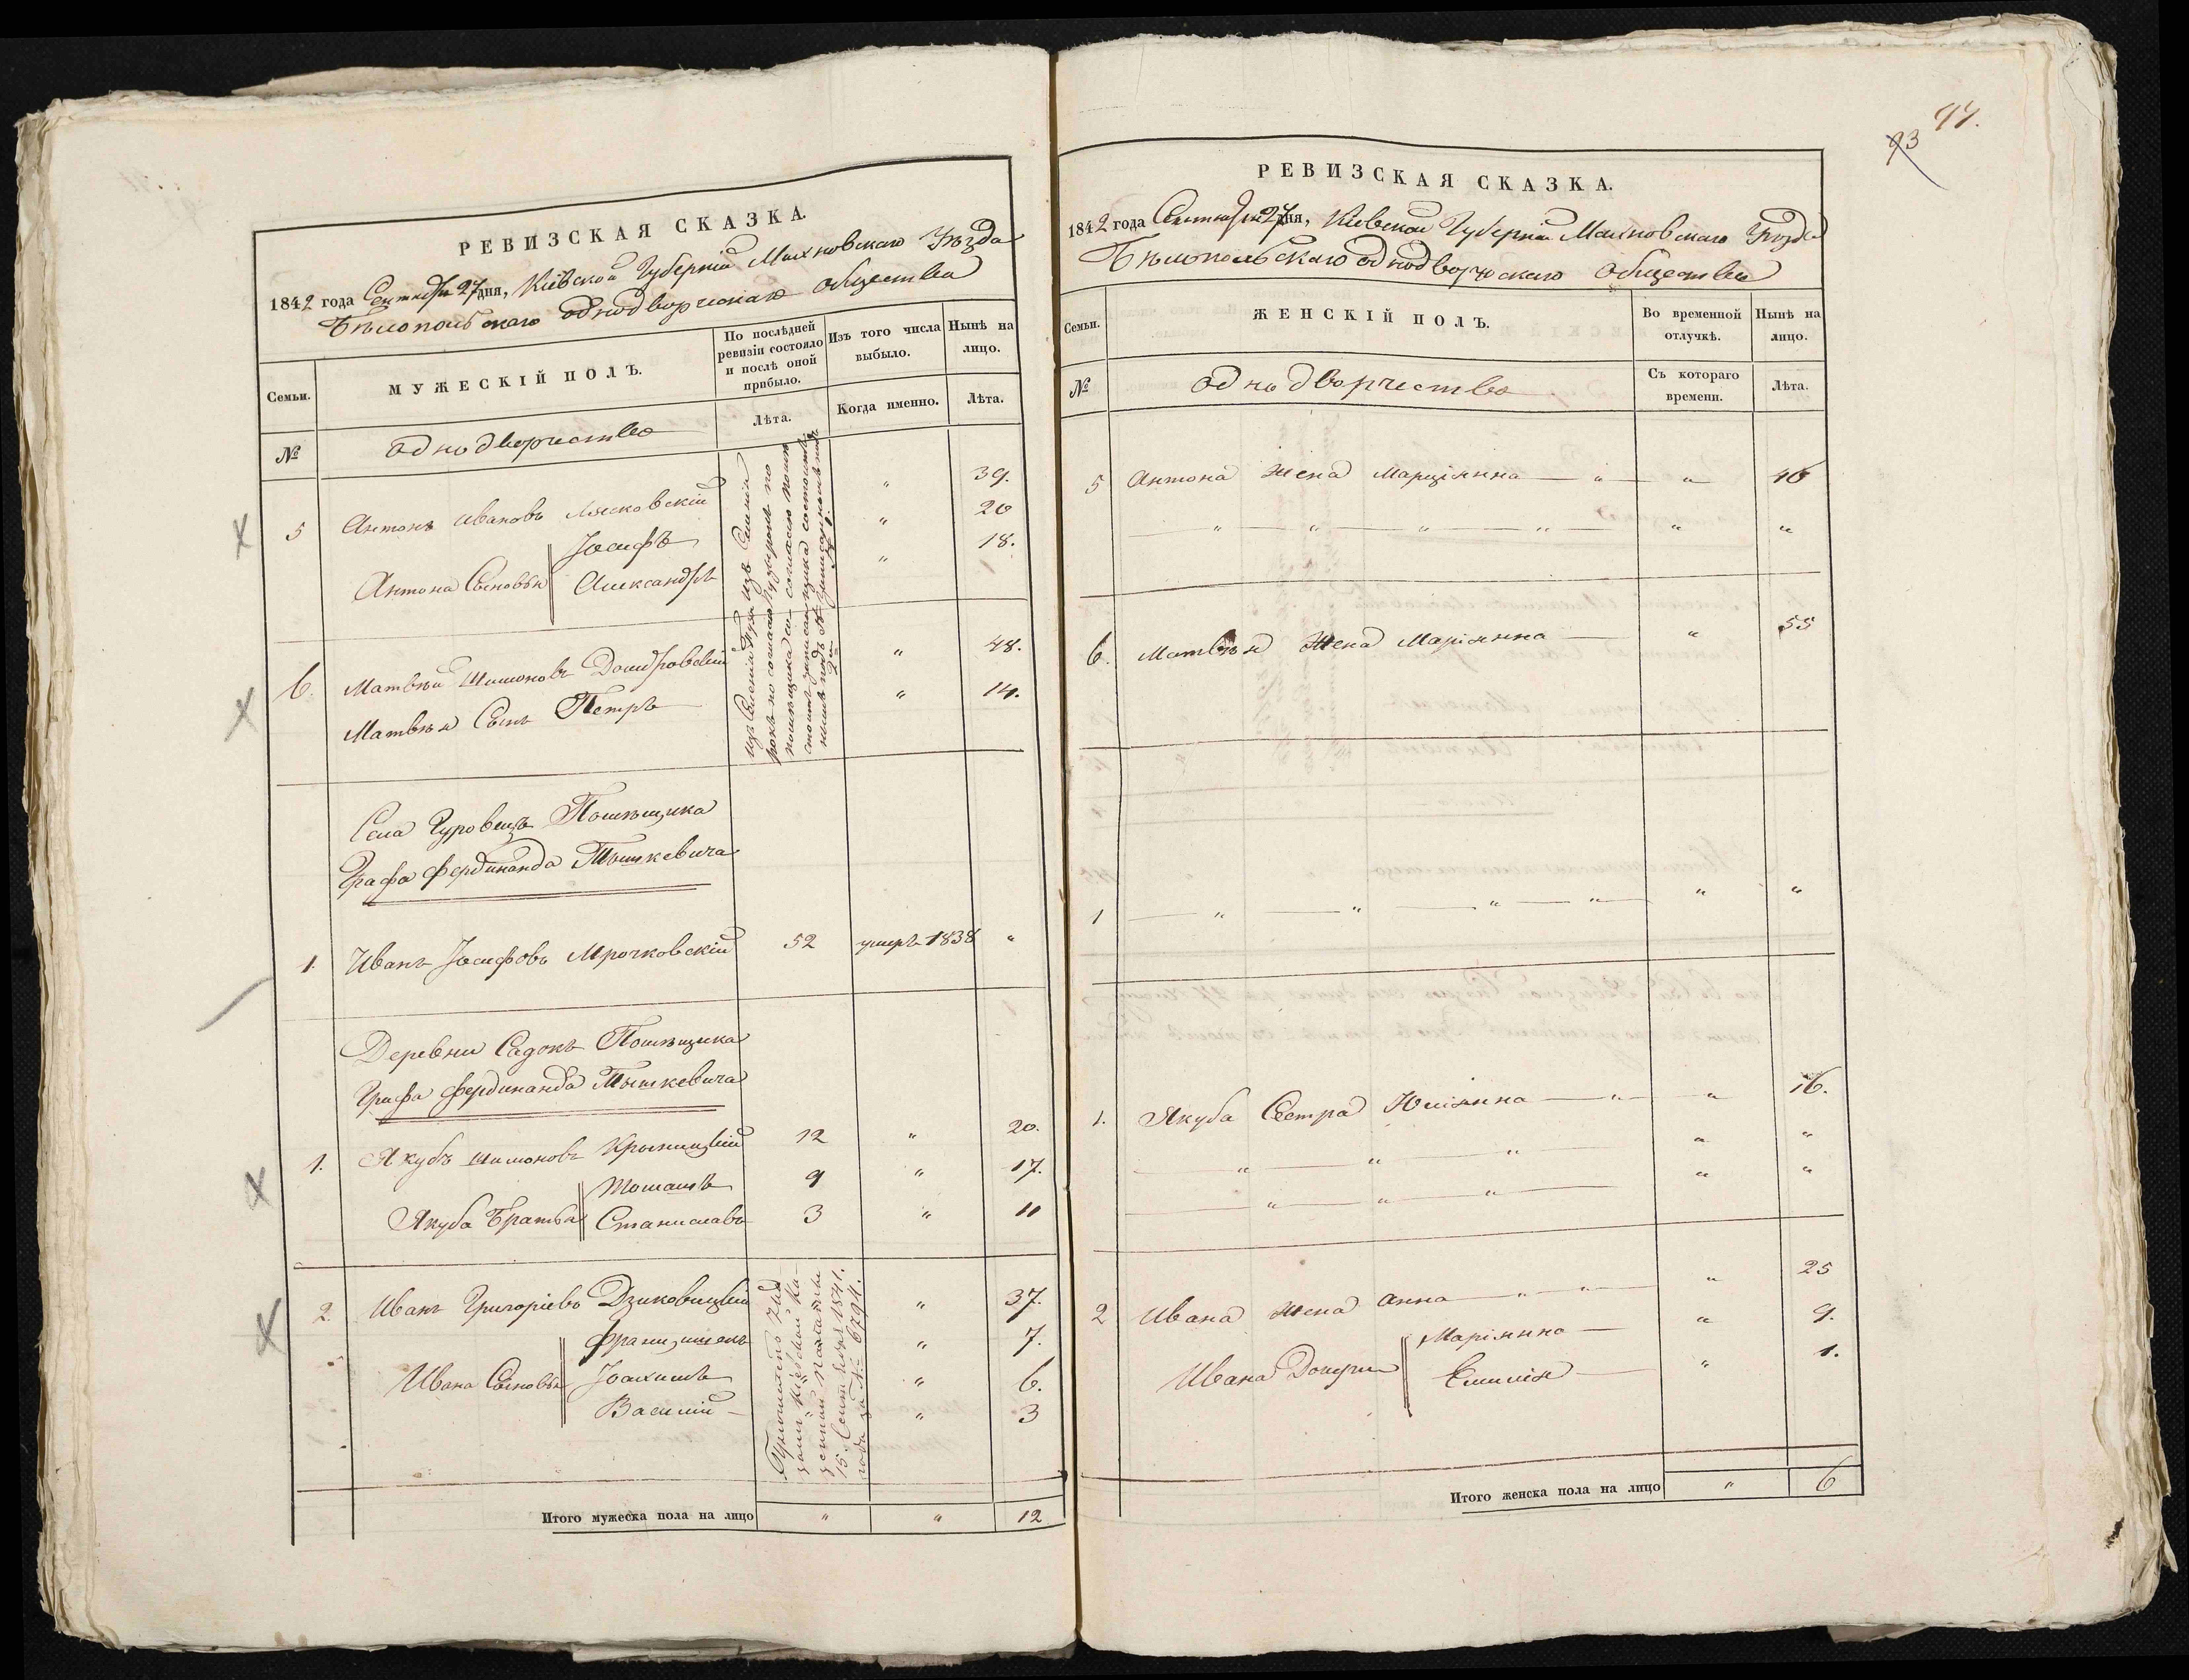 РЕВИЗСКАЯ СКАЗКА.
1842 года Сентября 27 дня, Кіевской Губерніи Махновскаго Уѣзда
Бѣлопольскаго однодворческаго общества
Семьи.
МУЖЕСКІЙ ПОЛЪ.
По послѣдней ревизіи состояло и послѣ оной прибыло.
Изъ того числа выбыло.
Нынѣ на лицо.
№
однодворчество
Лѣта.
Когда именно.
Лѣта.
5 Антонъ Ивановъ " 39.
Іосифъ " 20
Антона Сыновья Александръ " 18.
6. Матвѣй Шимоновъ Домбровскій " 48.
Матвѣя Сынъ Петръ " 14.
Села Гуровецъ Помѣщика
Графа Фердинанда Тышкевича
1. Иванъ Іосифовъ Мрочковскій 52 умеръ 1838 "
Деревни Садокъ Помѣщика
Графа Фердинанда Тышкевича
1. Якубъ Шимоновъ Крыницкій 12 " 20.
Томашъ 9 " 17.
Якуба Братья Станиславъ 3 " 11
2. Иванъ Григоріевъ Дзиковицкій " 37.
Францишекъ " 7.
Ивана Сыновья Іоахимъ " 6.
Василій " 3
15. Сент 1841.
года за № 6794.
Итого мужеска пола на лицо " " 12
93 94.
РЕВИЗСКАЯ СКАЗКА.
1842 года Сентября 27 дня, Кіевской Губерніи Махновскаго Уѣзда
Бѣлопольскаго однодворческаго общества
Семьи.
ЖЕНСКІЙ ПОЛЪ.
Во временной отлучкѣ.
Нынѣ на лицо.
№
однодворчество
Съ котораго времени.
Лѣта.
5 Антона Жена Марціянна " " 46
" " " " " "
6. Матвѣя Жена Маріянна " 55
1 " " " " " "
1. Якуба Сестра Юліянна " " 16.
" " " " "
" " " " "
2 Ивана Жена Анна " " " 25
Маріянна " 9.
Ивана Дочери Емилія " 1.
Итого женска пола на лицо " 6